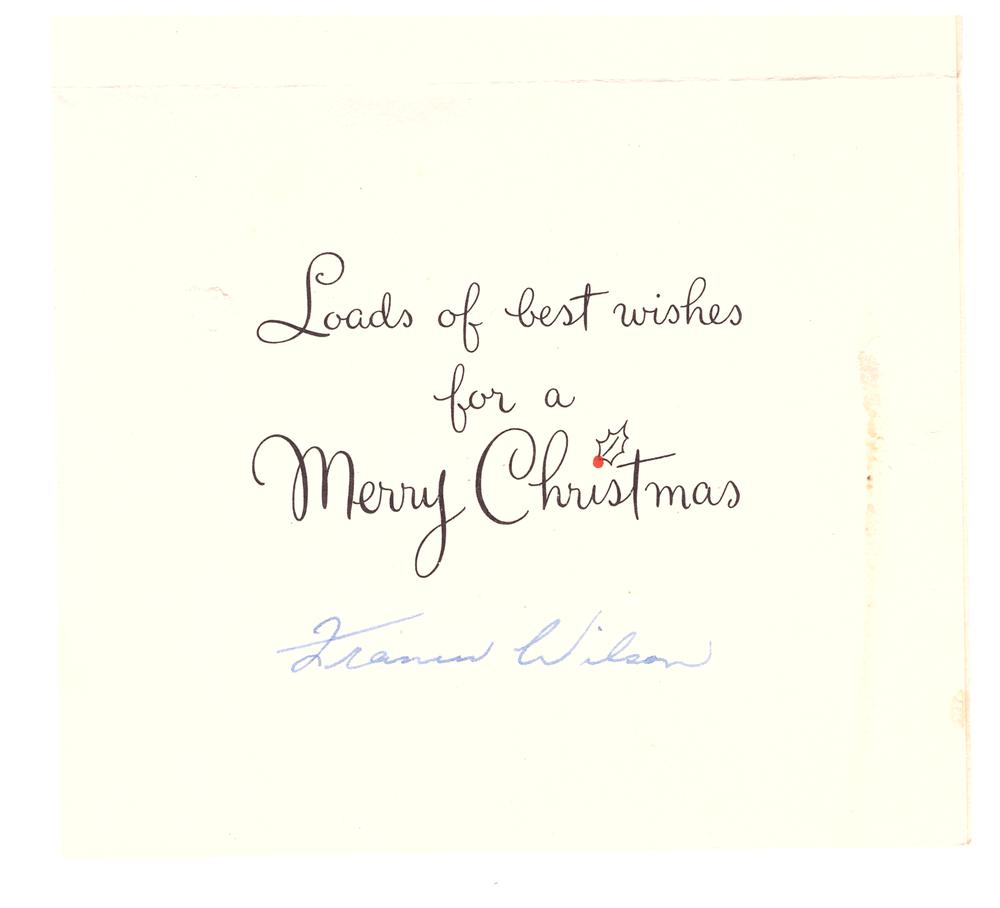 Loads of best wishes
for a
Merry Christmas
Francis Wilson